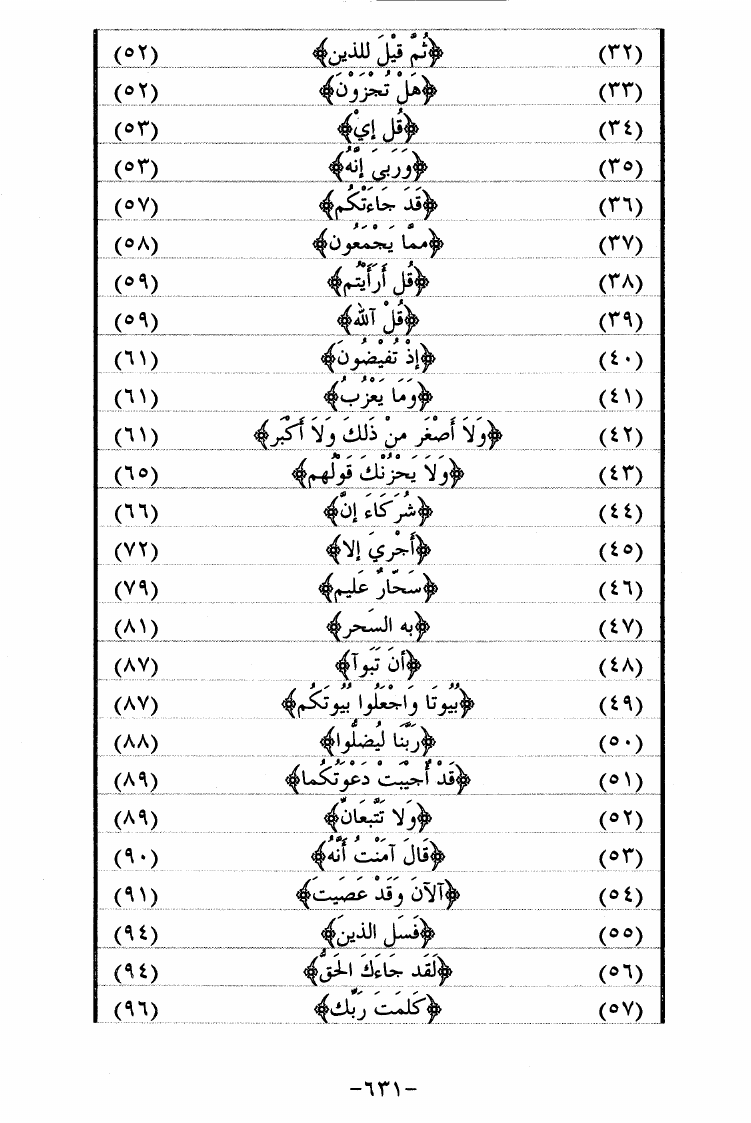 (٣٢) ﴿ثُمَّ قيْلَ للذين﴾ (٥٢)
(٣٣) ﴿هَلْ تُجْزَوْنَ﴾ (٥٢)
(٣٤) ﴿قُل إيْ﴾ (٥٣)
(٣٥) ﴿وَرَبيَ إنَّهُ﴾ (٥٣)
(٣٦) ﴿قَدَ جَاءَتْكُم﴾ (٥٧)
(٣٧) ﴿ممَّا يَجْمَعُون﴾ (٥٨)
(٣٨) ﴿قُل أرَأَيْتُم﴾ (٥٩)
(٣٩) ﴿قُلْ آلله﴾ (٥٩)
(٤٠) ﴿إذْ تُفيْضُونَ﴾ (٦١)
(٤١) ﴿وَمَا يَعْزُبُ﴾ (٦١)
(٤٢) ﴿وَلاَ أصْغَر منْ ذَلكَ وَلاَ أكْبَر﴾ (٦١)
(٤٣) ﴿وَلاَ يَحْزُنْكَ قَوْلُهم﴾ (٦٥)
(٤٤) ﴿شُرَكَاءَ إنَّ﴾ (٦٦)
(٤٥) ﴿أَجْريَ إلا﴾ (٧٢)
(٤٦) ﴿سَحّارٌ عَليم﴾ (٧٩)
(٤٧) ﴿به السَحر﴾ (٨١)
(٤٨) ﴿أنَ تَبَوآ﴾ (٨٧)
(٤٩) ﴿بُيُوتَا وَاجْعَلُوا بُيُوتَكُم﴾ (٨٧)
(٥٠) ﴿رَبَّنَا ليُضلُّوا﴾ (٨٨)
(٥١) ﴿قَدْ أُجيْبَتْ دَعْوَتُكُما﴾ (٨٩)
(٥٢) ﴿وَلا تَتَّبعَانِّ﴾ (٨٩)
(٥٣) ﴿قَالَ آمَنْتُ أنَّهُ﴾ (٩٠)
(٥٤) ﴿آلآنَ وَقَدْ عَصَيتَ﴾ (٩١)
(٥٥) ﴿فَسَل الذينَ﴾ (٩٤)
(٥٦) ﴿لَقَد جَاءَكَ الحَقُّ﴾ (٩٤)
(٥٧) ﴿كَلمَتَ رَبِّك﴾ (٩٦)
-٦٣١-